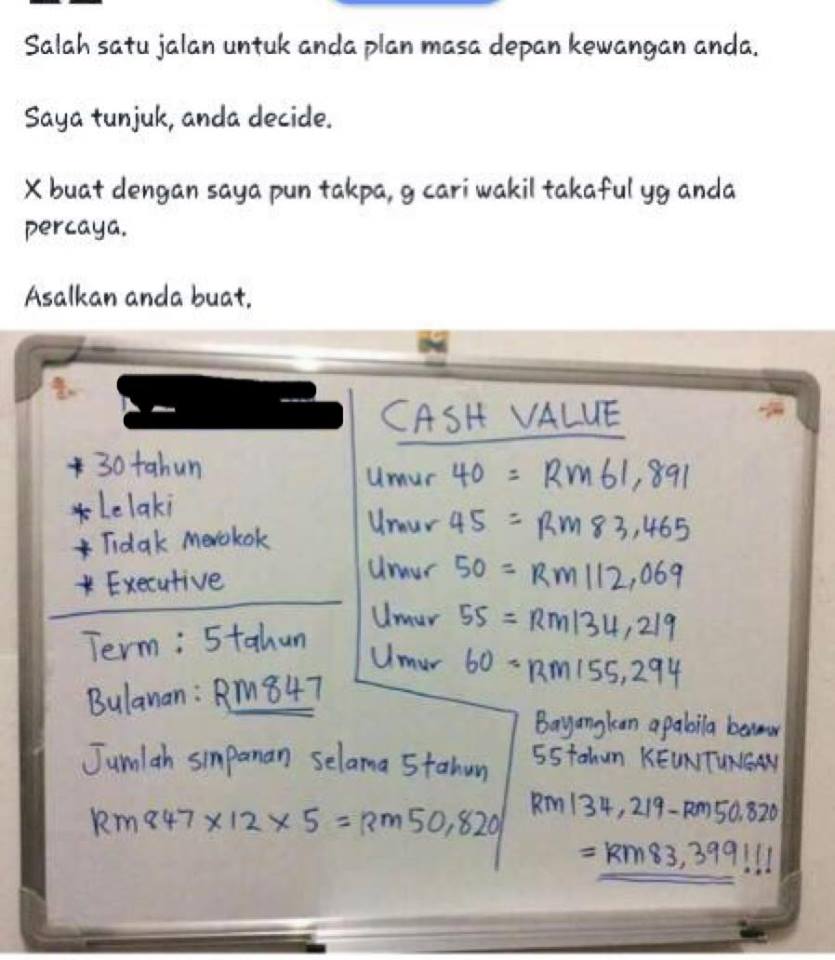 Salah satu jalan untuk anda plan masa depan kewangan anda.
Saya tunjuk, anda decide.
X buat dengan saya pun takpa, g cari wakil takaful yg anda
percaya.
Asalkan anda buat.
* 30 tahun
* Lelaki
* Tidak Merokok
* Executive
Term : 5 tahun
Bulanan : RM847
Jumlah simpanan selama 5 tahun
RM847 x 12 x 5 = RM50,820
CASH VALUE
Umur 40 = RM61,891
Umur 45 = RM83,465
Umur 50 = RM112,069
Umur 55 = RM134,219
Umur 60 = RM155,294
Bayangkan apabila berumur
55 tahun KEUNTUNGAN
RM134,219 - RM50,820
= RM83,399!!!